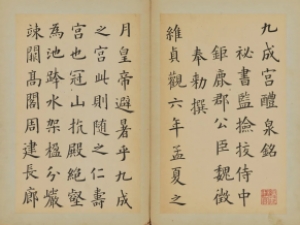 九成宮醴泉銘
秘書監撿挍侍中
鉅鹿郡公臣魏徵
奉勅撰
維貞觀六年孟夏之
月皇帝避暑乎九成
之宮此則隨之仁壽
宮也冠山抗殿絕壑
為池跨水架楹分巖
竦闕高閣周建長廊